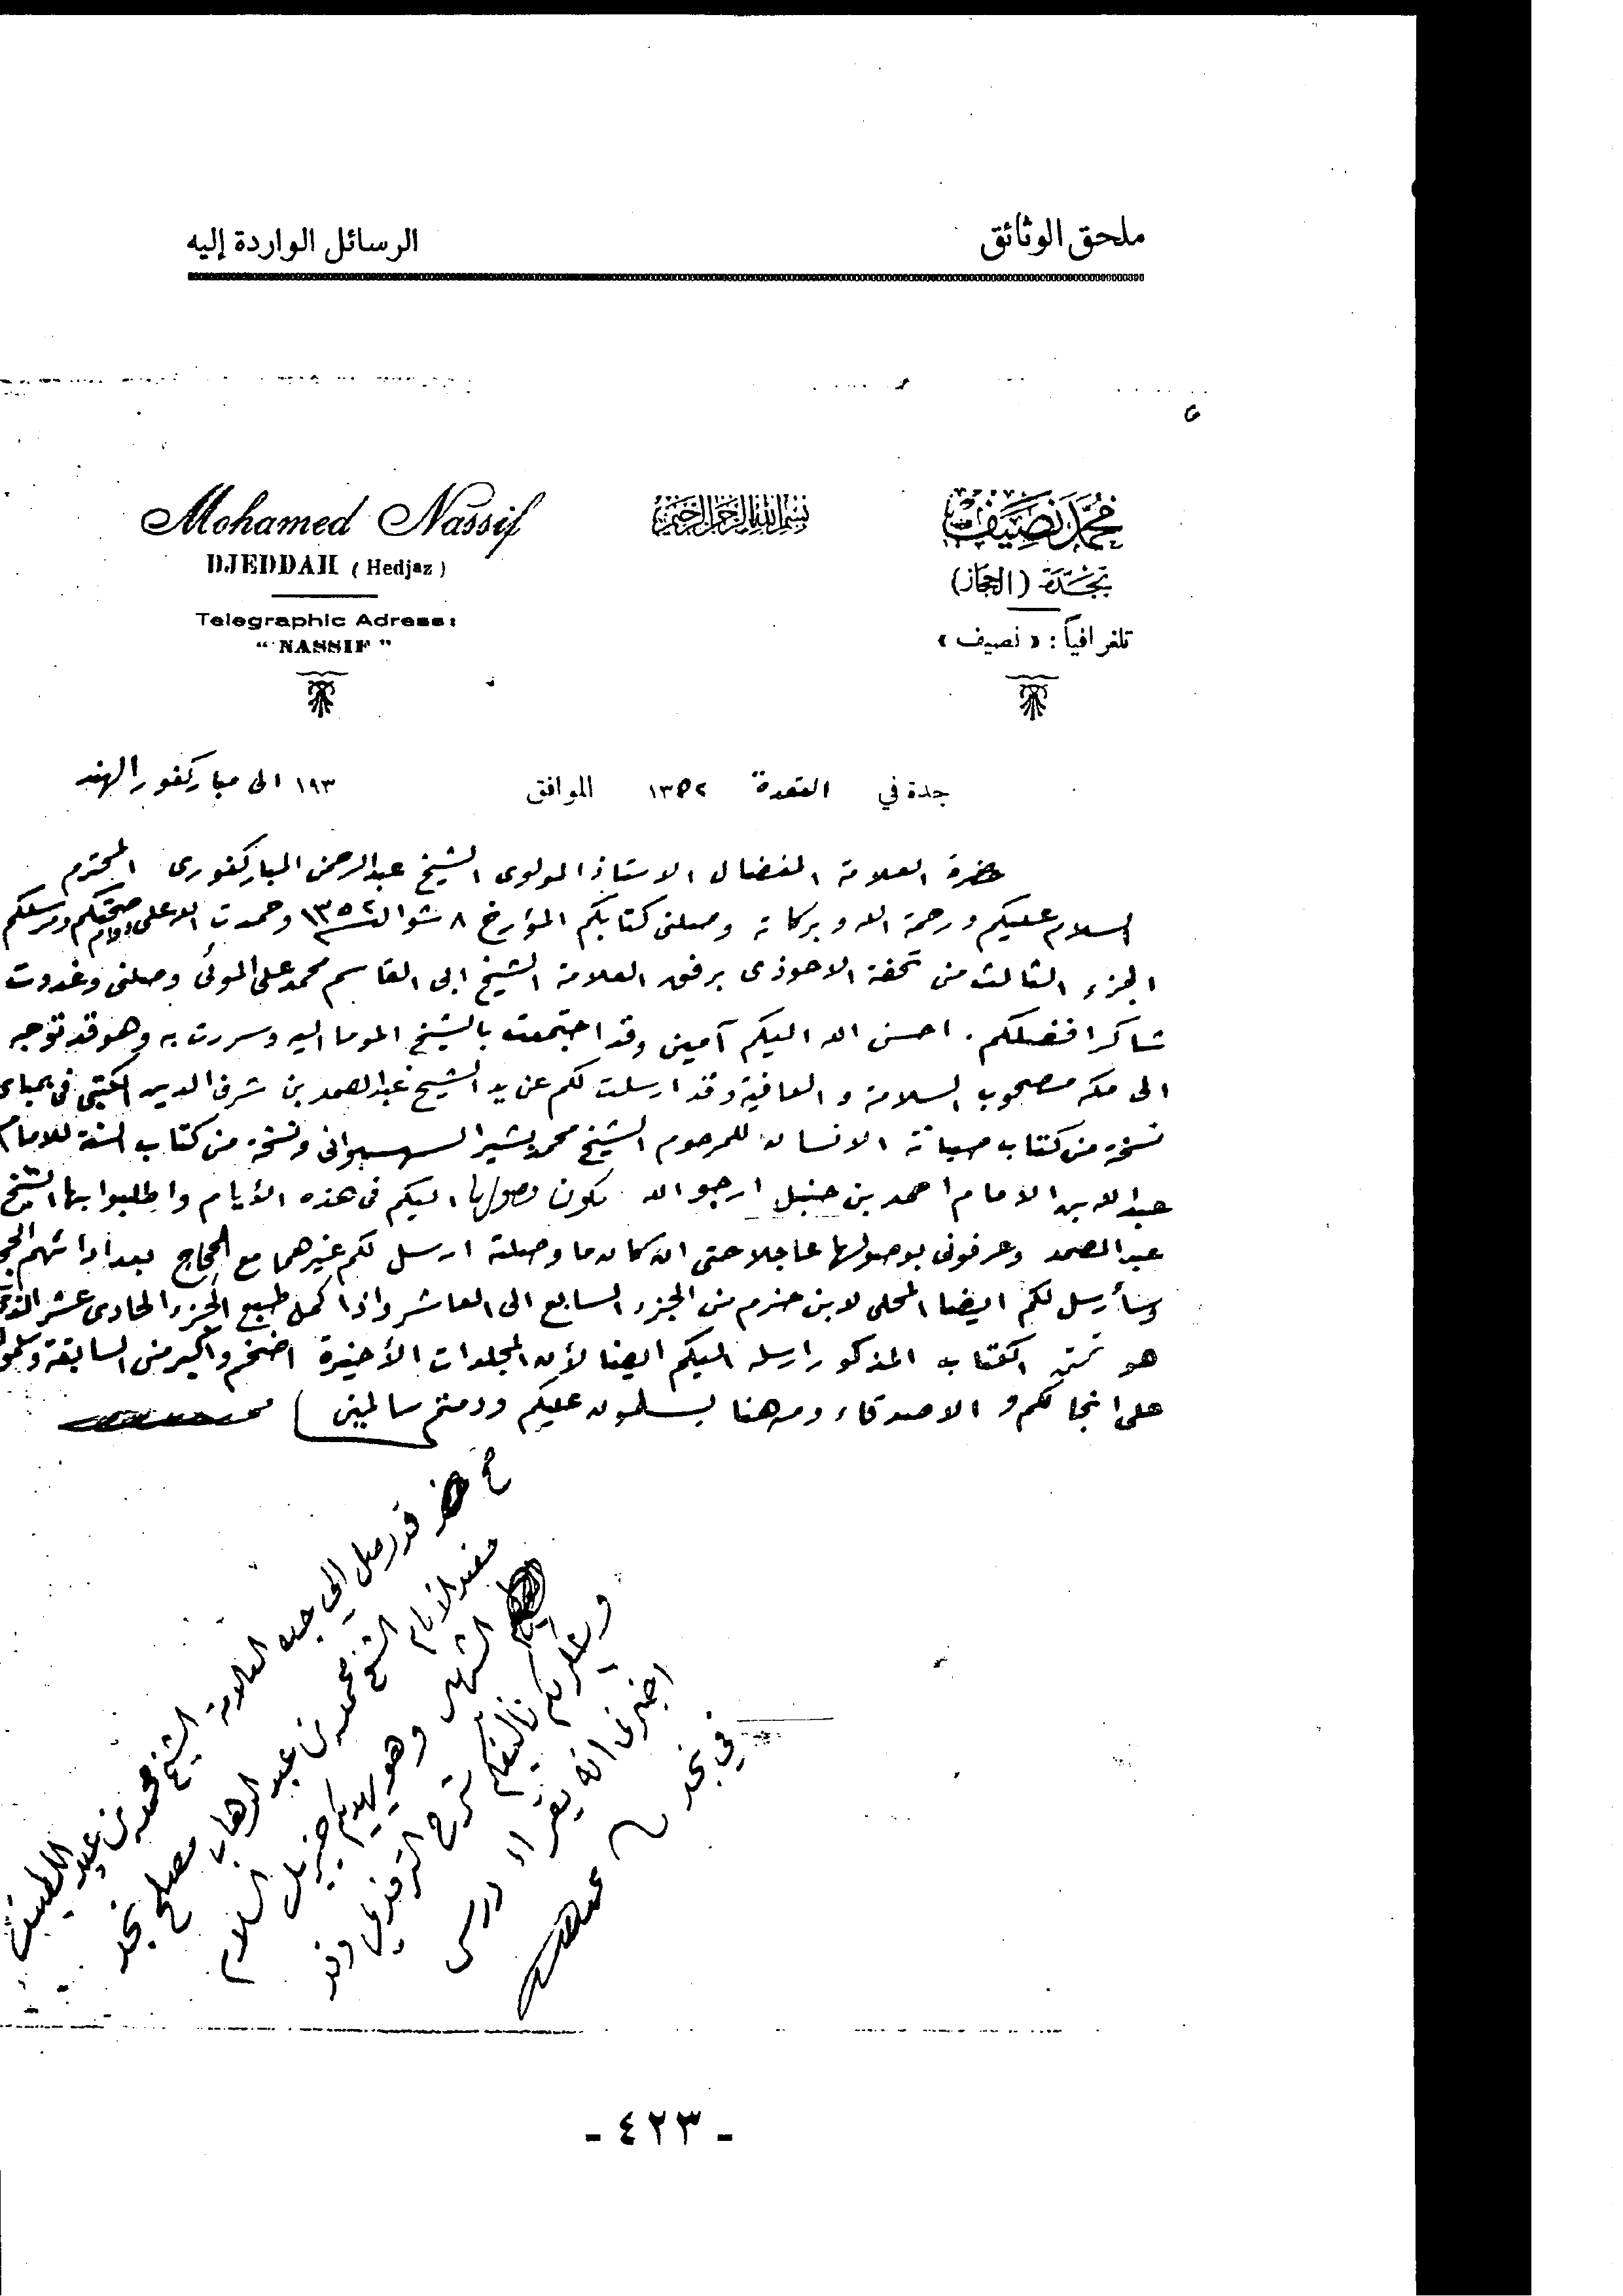 ملحق الوثائق
الرسائل الواردة إليه
محمد نصيف
بجدة (الحجاز)
تلغرافياً : « نصيف »
بسم الله الرحمن الرحيم
Mohamed Nassif
DJEDDAH ( Hedjaz )
Telegraphic Adress :
“ NASSIF ”
جدة في القعدة ١٣٥٢ الموافق ١٩٣ الى مباركفور الهند
حضرة العلامة المفضال الاستاذ المولوى الشيخ عبدالرحمن المباركفورى المحترم
السلام عليكم ورحمة الله وبركاته وصلنى كتابكم المؤرخ ٨ شوال سنة ١٣٥٢ وحمدت الله على صحتكم ومرسلكم
الجزء الثالث من تحفة الاحوذى برفق العلامة الشيخ ابى القاسم محمد على الموئى وصلنى وغدوت
شاكرا فضلكم . احسن الله اليكم آمين وقد اجتمعت بالشيخ الموما اليه وسررت به وهو قد توجه
الى مكه مصحوب السلامة و العافية وقد ارسلت لكم عن يد الشيخ عبدالصمد بن شرف الدين الكتبى فى بمباى
نسخة من كتاب صيانة الانسان للمرحوم الشيخ محمد بشير السهسوانى ونسخة من كتاب السنة للامام
عبدالله بن الامام احمد بن حنبل ارجو الله يكون وصولها اليكم فى هذه الأيام واطلبوا بها الشيخ
عبد الصمد وعرفونى بوصولها عاجلا حتى ان كان ما وصلته ارسل لكم غيرهما مع الحجاج بعد اداءهم الحج
وسأرسل لكم ايضا المحلى لابن حزم من الجزء السابع الى العاشر واذا كمل طبع الجزء الحادى عشر الذى
هو تمتى الكتاب المذكور ارسله اليكم ايضا لأن المجلدات الأخيرة اضخم واكبر من السابقة وسلموا
على انجالكم و الاصدقاء ومن هنا يسلمون عليكم ودمتم سالمين
قد وصل الى جده العلامة الشيخ محمد بن عبد اللطيف
حفيد الامام الشيخ محمد بن عبد الوهاب مصلح نجد
الشهير وهو يهديكم جزيل السلام
ويشكركم تأليفكم شرح الترمذى وقد
اخبرنى انه يقراء درس
في نجد
- ٤٢٣ -